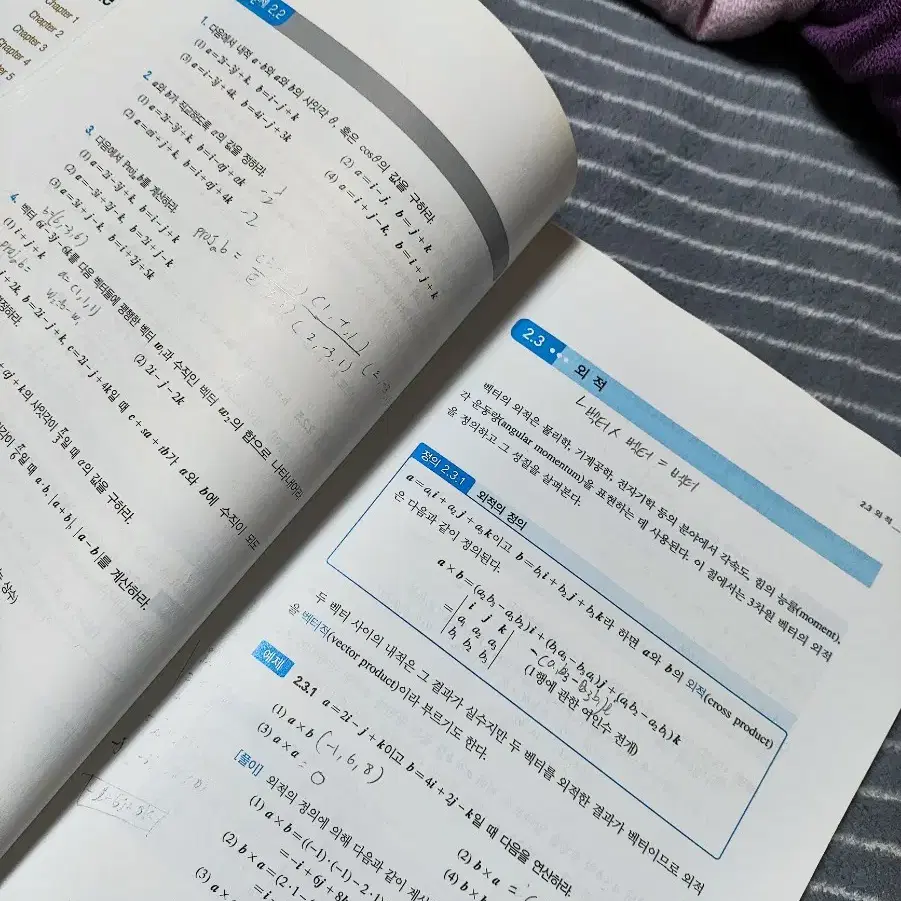 Chapter 1
Chapter 2
Chapter 3
Chapter 4
2.2
1. 다음에서 내적 a·b와 a와 b의 사잇각 θ, 혹은 cosθ의 값을 구하라.
(1) a=2i-3j+k, b=i-j+k
(2) a=i-j, b=j+k
(3) a=i-3j+4k, b=4i-j+3k
(4) a=i+j-k, b=i+j+k
2. a와 b가 직교하도록 a의 값을 정하라.
(1) a=2i-3j+k, b=i-aj+ak
(2) a=ai+j+k, b=i-aj+4k -2
3. 다음에서 Proj b를 계산하라.
(1) a=2i-3j+k, b=i-j+k
(2) a=-3i-j-k, b=2i+j-k
(3) a=3i+j-k, b=i+2j-5k
proj_a b =
(2, -3, 1)
4. 벡터 6i-3j-6k를 다음 벡터들에 평행한 벡터 w₁과 수직인 벡터 w₂의 합으로 나타내어라.
(1) i+j+k
(2) 2i-j-2k
a=(1,1,1)
b=2i-j+k, c=2i-j+4k일 때 c+sa+tb가 a와 b에 수직이 되도
의 사잇각이 π/3일 때 a의 값을 구하라.
일 때 a·b, |a+b|, |a-b|를 계산하라.
2.3 외적
2.3 외 적
ㄴ벡터 X 벡터 = 벡터
벡터의 외적은 물리학, 기계공학, 전자기학 등의 분야에서 각속도, 힘의 능률(moment),
각 운동량(angular momentum)을 표현하는 데 사용된다. 이 절에서는 3차원 벡터의 외적
을 정의하고 그 성질을 살펴본다.
정의 2.3.1 외적의 정의
a=a₁i+a₂j+a₃k이고 b=b₁i+b₂j+b₃k라 하면 a와 b의 외적(cross product)
은 다음과 같이 정의된다.
a×b=(a₂b₃-a₃b₂)i+(b₁a₃-b₃a₁)j+(a₁b₂-a₂b₁)k
= | i j k |
| a₁ a₂ a₃ |
| b₁ b₂ b₃ |
(1행에 관한 여인수 전개)
두 벡터 사이의 내적은 그 결과가 실수지만 두 벡터를 외적한 결과가 벡터이므로 외적
을 벡터적(vector product)이라 부르기도 한다.
예제 2.3.1 a=2i-j+k이고 b=4i+2j-k일 때 다음을 연산하라.
(1) a×b (-1, 6, 8)
(2) b×a =
(3) a×a = 0
(4) b×
[풀이] 외적의 정의에 의해 다음과 같이 계산
(1) a×b=((-1)·(-1)-2·1
=-i+6j+8k
(2) b×a=(2·1-
=i-
(3) a×